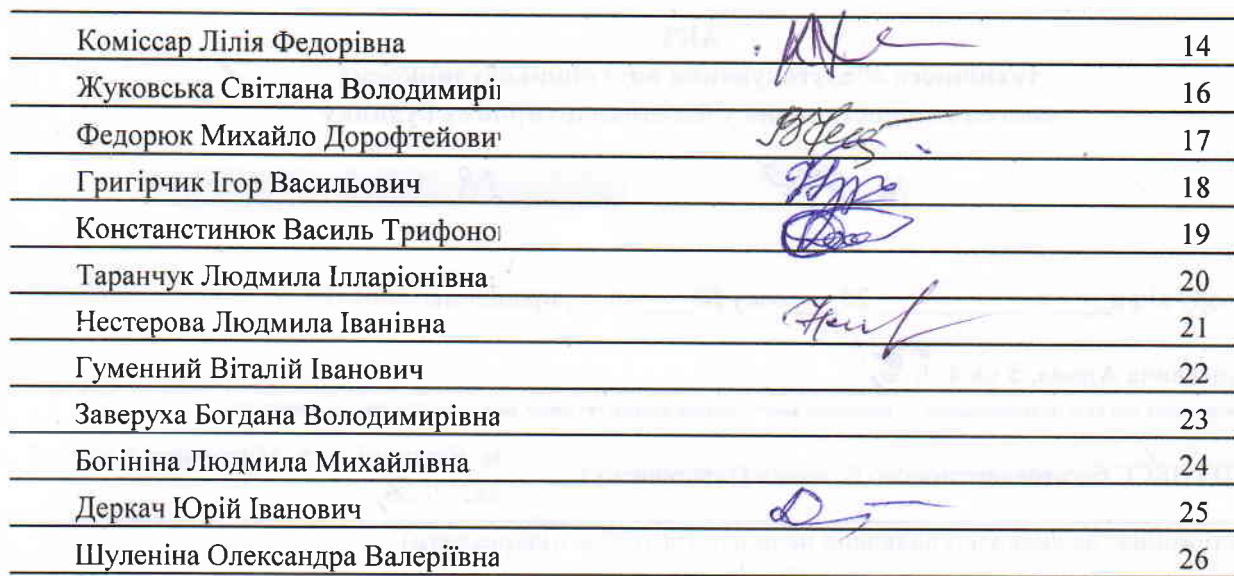 Коміссар Лілія Федорівна 14
Жуковська Світлана Володимирі 16
Федорюк Михайло Дорофтейови 17
Григірчик Ігор Васильович 18
Констанстинюк Василь Трифоно 19
Таранчук Людмила Ілларіонівна 20
Нестерова Людмила Іванівна 21
Гуменний Віталій Іванович 22
Заверуха Богдана Володимирівна 23
Богініна Людмила Михайлівна 24
Деркач Юрій Іванович 25
Шуленіна Олександра Валеріївна 26